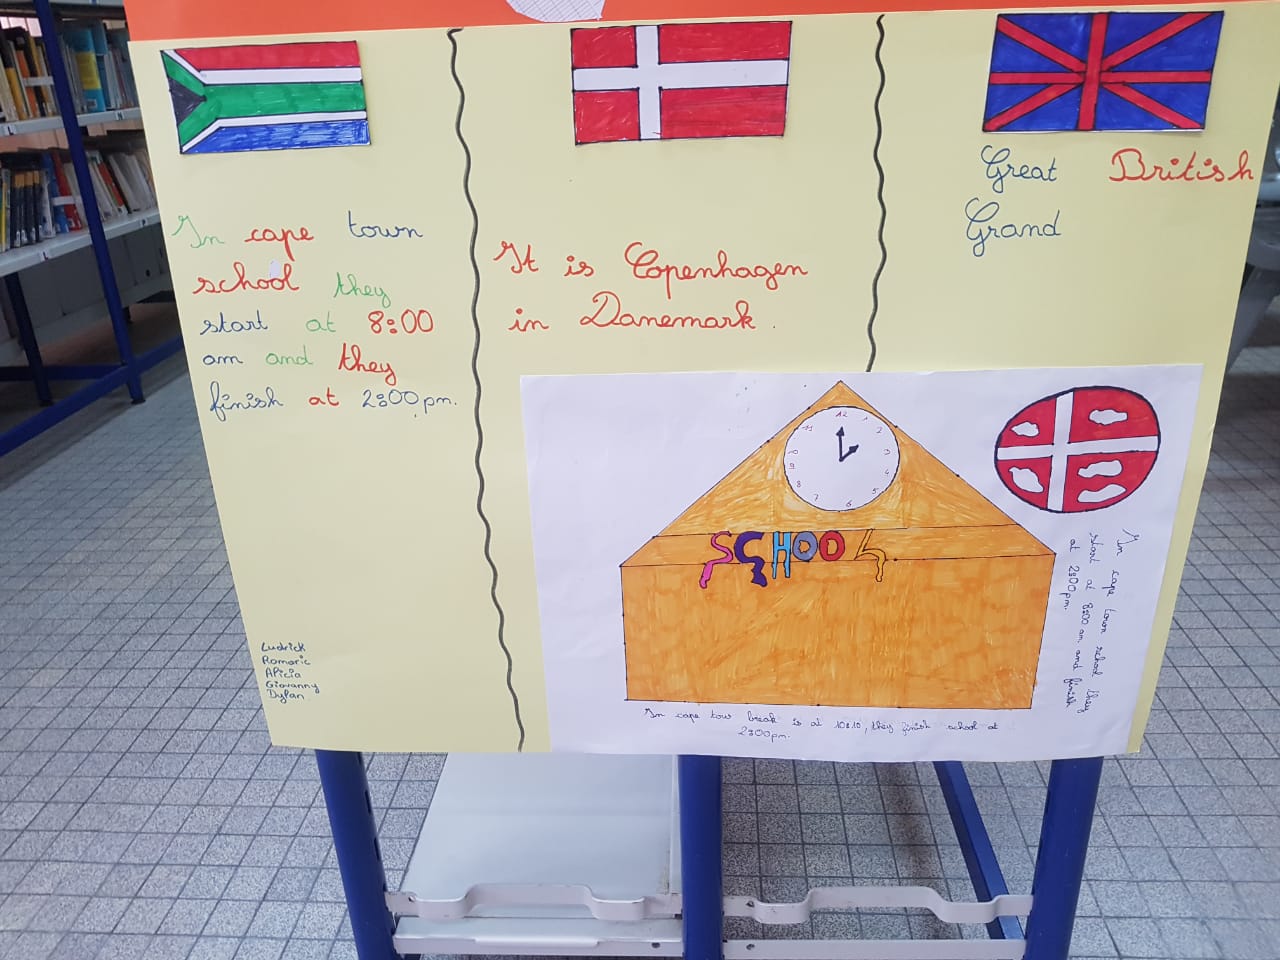 In cape town
school they
start at 8:00
am and they
finish at 2:00 pm.
Ludrick
Romaric
Alicia
Giovanny
Dylan
It is Copenhagen
in Danemark.
Great British
Grand
12
1
2
3
4
5
6
7
8
9
10
11
SCHOOL
In cape town school they
start at 8:00 am and finish
at 2:00 pm.
In cape tow break is at 10:10, they finish school at
2:00 pm.